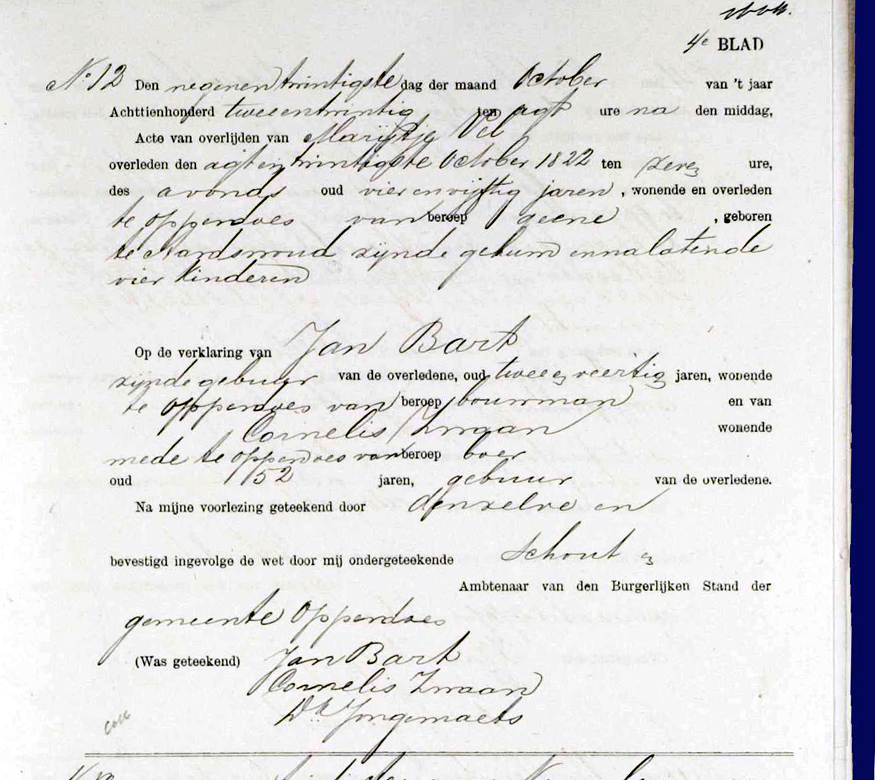 4e BLAD
No. 12 Den negenentwintigste dag der maand October van 't jaar
Achttienhonderd tweeentwintig ten agt ure na den middag,
Acte van overlijden van Marijtje Vel
overleden den agtentwintigste October 1822 ten zeven ure,
des avonds oud vierenvijftig jaren, wonende en overleden
te opperdoes van beroep geene, geboren
te Aardswoud zijnde gehuwd en nalatende
vier kinderen
Op de verklaring van Jan Bart
zijnde gebuur van de overledene, oud twee en veertig jaren, wonende
te opperdoes van beroep bouwman en van
Cornelis Zwaan wonende
mede te opperdoes van beroep boer
oud 52 jaren, gebuur van de overledene.
Na mijne voorlezing geteekend door denzelve en
bevestigd ingevolge de wet door mij ondergeteekende Schout en
Ambtenaar van den Burgerlijken Stand der
gemeente Opperdoes
(Was geteekend) Jan Bart
Cornelis Zwaan
Dk Jongemaets